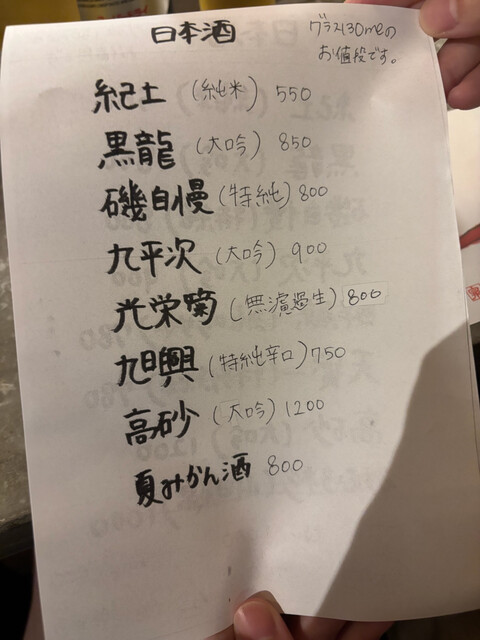 日本酒
グラス130mlの
お値段です。
紀土 (純米) 550
黒龍 (大吟) 850
磯自慢 (特純) 800
九平次 (大吟) 900
光栄菊 (無濾過生) 800
旭興 (特純辛口) 750
高砂 (大吟) 1200
夏みかん酒 800